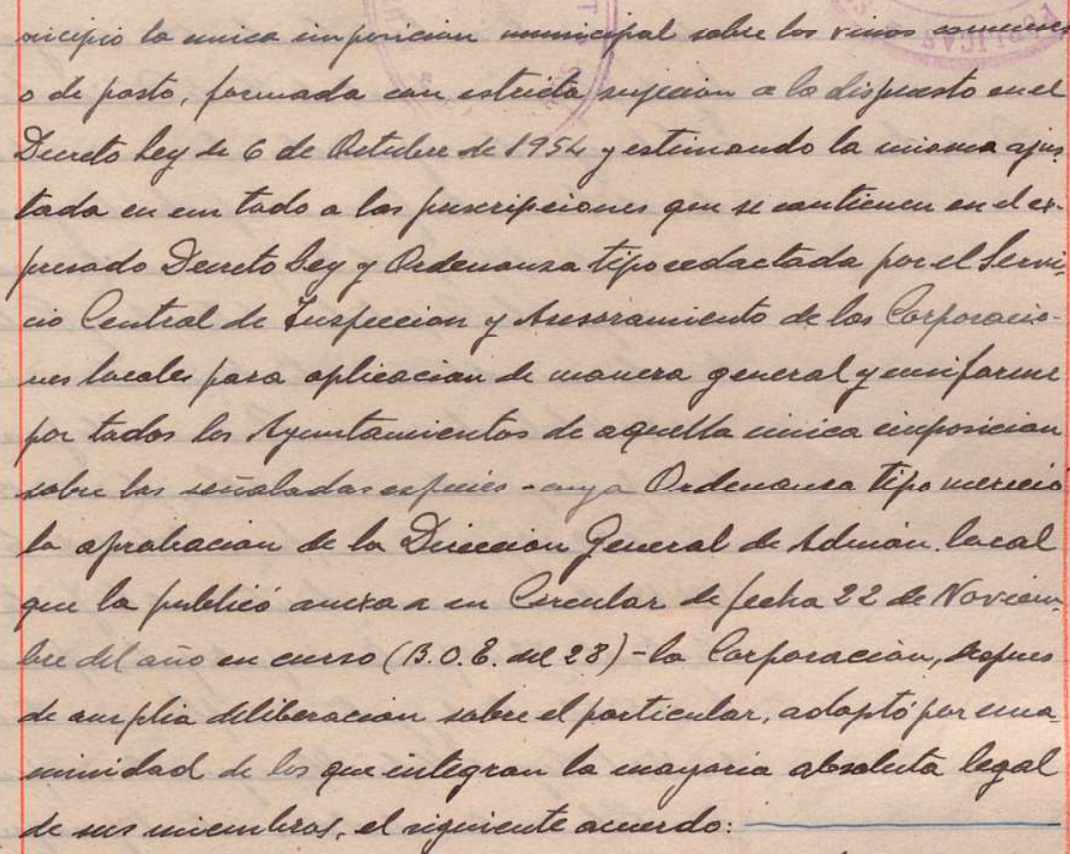 nicipio la unica imposicion municipal sobre los vinos comunes
o de pasto, formada con estricta sujecion a lo dispuesto en el
Decreto Ley de 6 de Octubre de 1954 y estimando la misma ajus
tada en un todo a las prescripciones que se contienen en el ex-
presado Decreto Ley y Ordenanza tipo redactada por el Servi-
cio Central de Inspeccion y Asesoramiento de las Corporacio-
nes locales para aplicacion de manera general y uniforme
por todos los Ayuntamientos de aquella unica imposicion
sobre las señaladas especies - cuya Ordenanza tipo mereció
la aprobacion de la Direccion General de Admón. local
que la publicó anexa a su Circular de fecha 22 de Noviem-
bre del año en curso (B.O.E. del 28) - la Corporación, despues
de amplia deliberacion sobre el particular, adoptó por una-
nimidad de los que integran la mayoria absoluta legal
de sus miembros, el siguiente acuerdo: